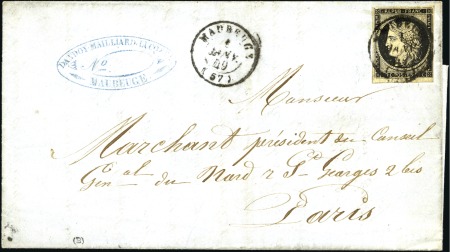 DANDOY-MAILLIARD, LUCQ
No
MAUBEUGE
MAUBEUGE
JANV.
49
(57)
REPUB. FRANC.
Monsieur
Marchant président du Conseil
Gen al du Nord r St Georges 2 bis
Paris
(B)